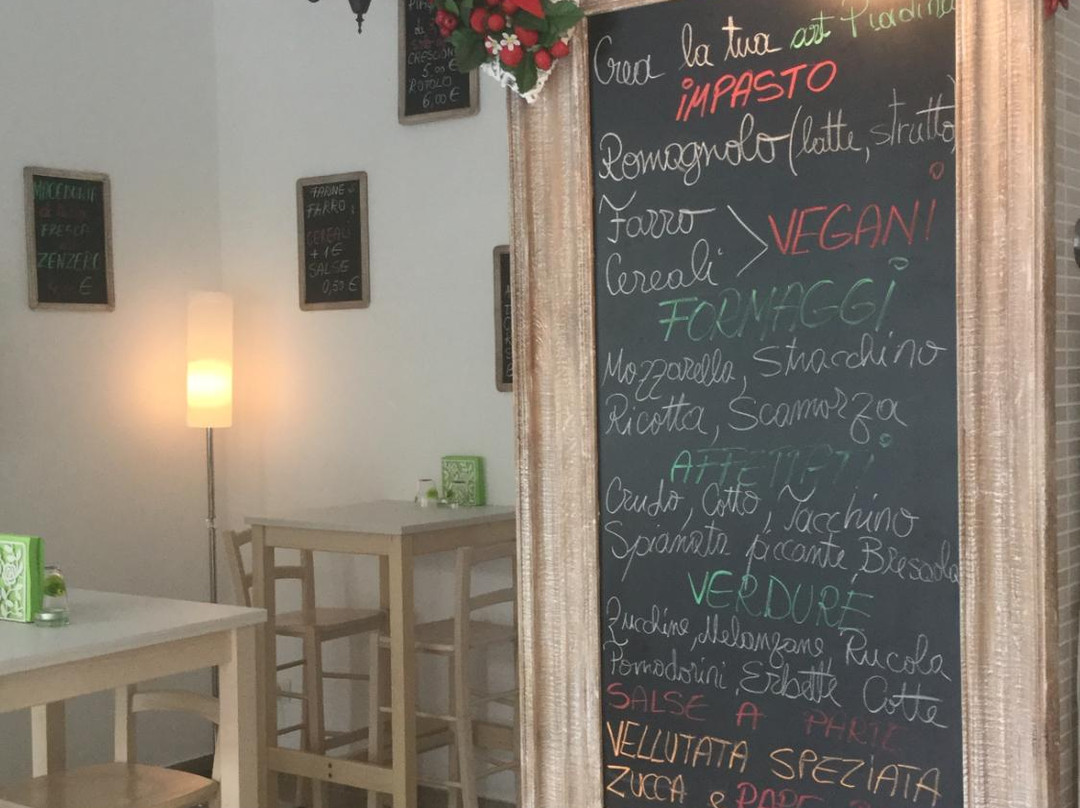 Crea la tua art Piadina
IMPASTO
Romagnolo (latte, strutto)
Farro
Cereali > VEGANI
FORMAGGI
Mozzarella, Stracchino
Ricotta, Scamorza
AFFETTATI
Crudo, Cotto, Tacchino
Spianata piccante, Bresaola
VERDURE
Zucchine, Melanzane Rucola
Pomodorini, Erbette Cotte
SALSE A PARTE
VELLUTATA SPEZIATA
ZUCCA e
CRESCIONE
5,00 €
ROTOLO
6,00 €
FARINE
FARRO
CEREALI
+ 1 €
SALSE
0,50 €
MACEDONIA
FRESCA
ZENZERO
€